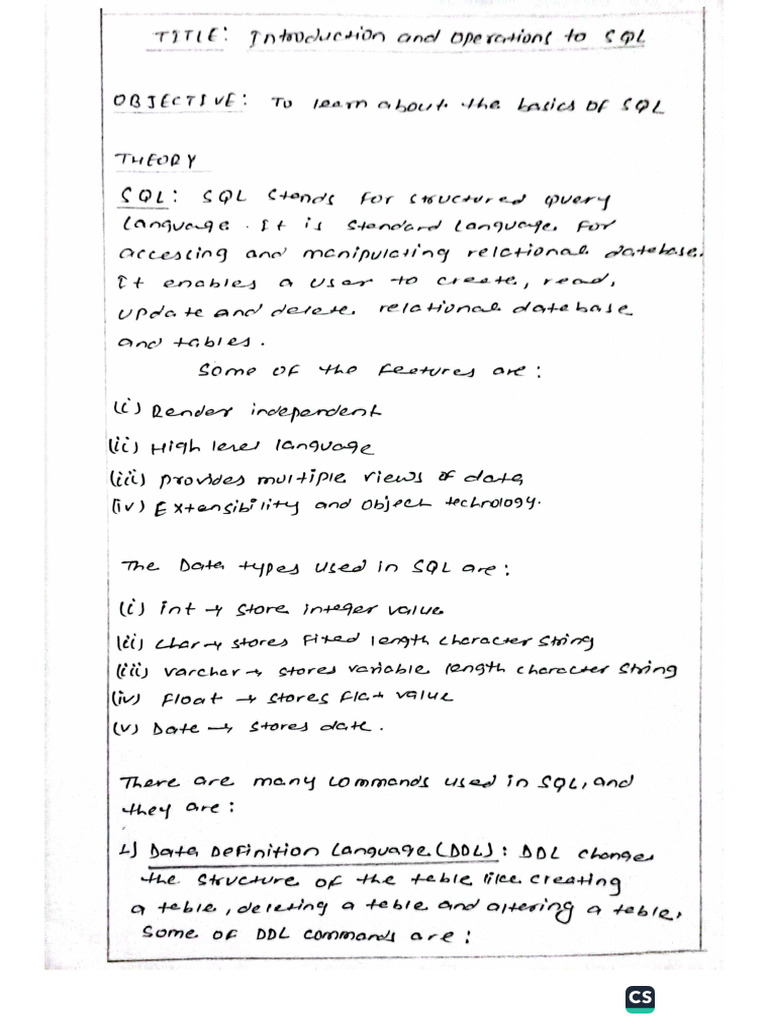 TITLE: Introduction and Operations to SQL
OBJECTIVE: To learn about the basics of SQL
THEORY
SQL: SQL stands for structured query
language. It is standard language for
accessing and manipulating relational database.
It enables a user to create, read,
update and delete relational database
and tables.
Some of the features are:
(i) Render independent
(ii) High level language
(iii) provides multiple views of data
(iv) Extensibility and object technology.
The Data types used in SQL are:
(i) int → store integer value
(ii) char → stores fixed length character string
(iii) varchar → stores variable length character string
(iv) float → stores flat value
(v) Date → stores date.
There are many commands used in SQL, and
they are:
1) Data Definition Language (DDL): DDL changes
the structure of the table like creating
a table, deleting a table and altering a table.
Some of DDL commands are:
CS